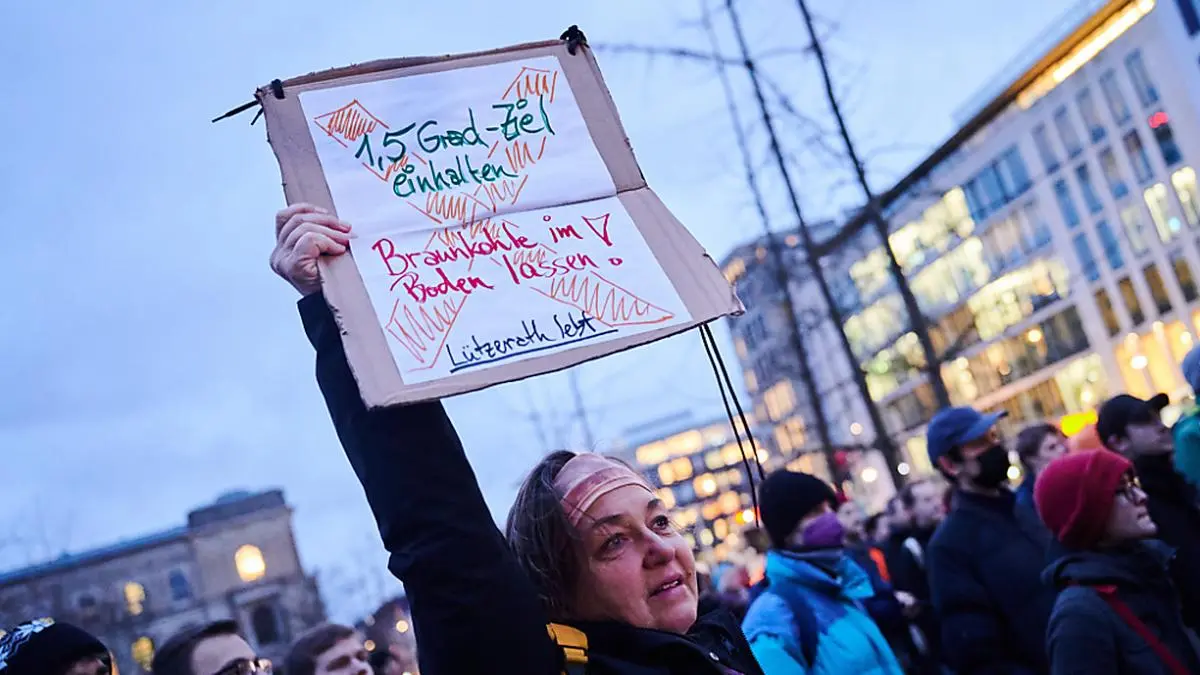 1,5 Grad-Ziel
einhalten
Braunkohle im
Boden lassen!
Lützerath lebt